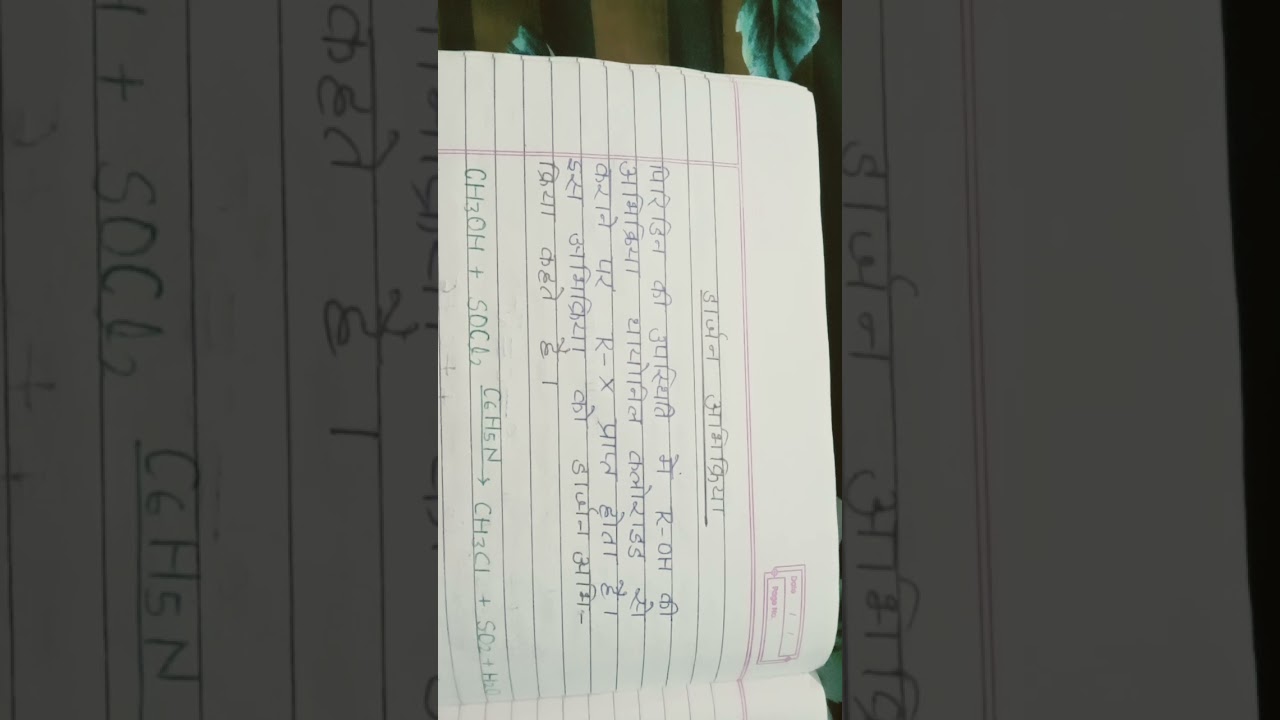 Date / /
Page No.
डार्जन अभिक्रिया
पिरिडिन की उपस्थिति में R-OH की
अभिक्रिया थायोनिल क्लोराइड से
कराने पर R-X प्राप्त होता है।
इस अभिक्रिया को डार्जन अभि-
क्रिया कहते है।
CH3OH + SOCl2 C6H5N → CH3Cl + SO2 + H2O